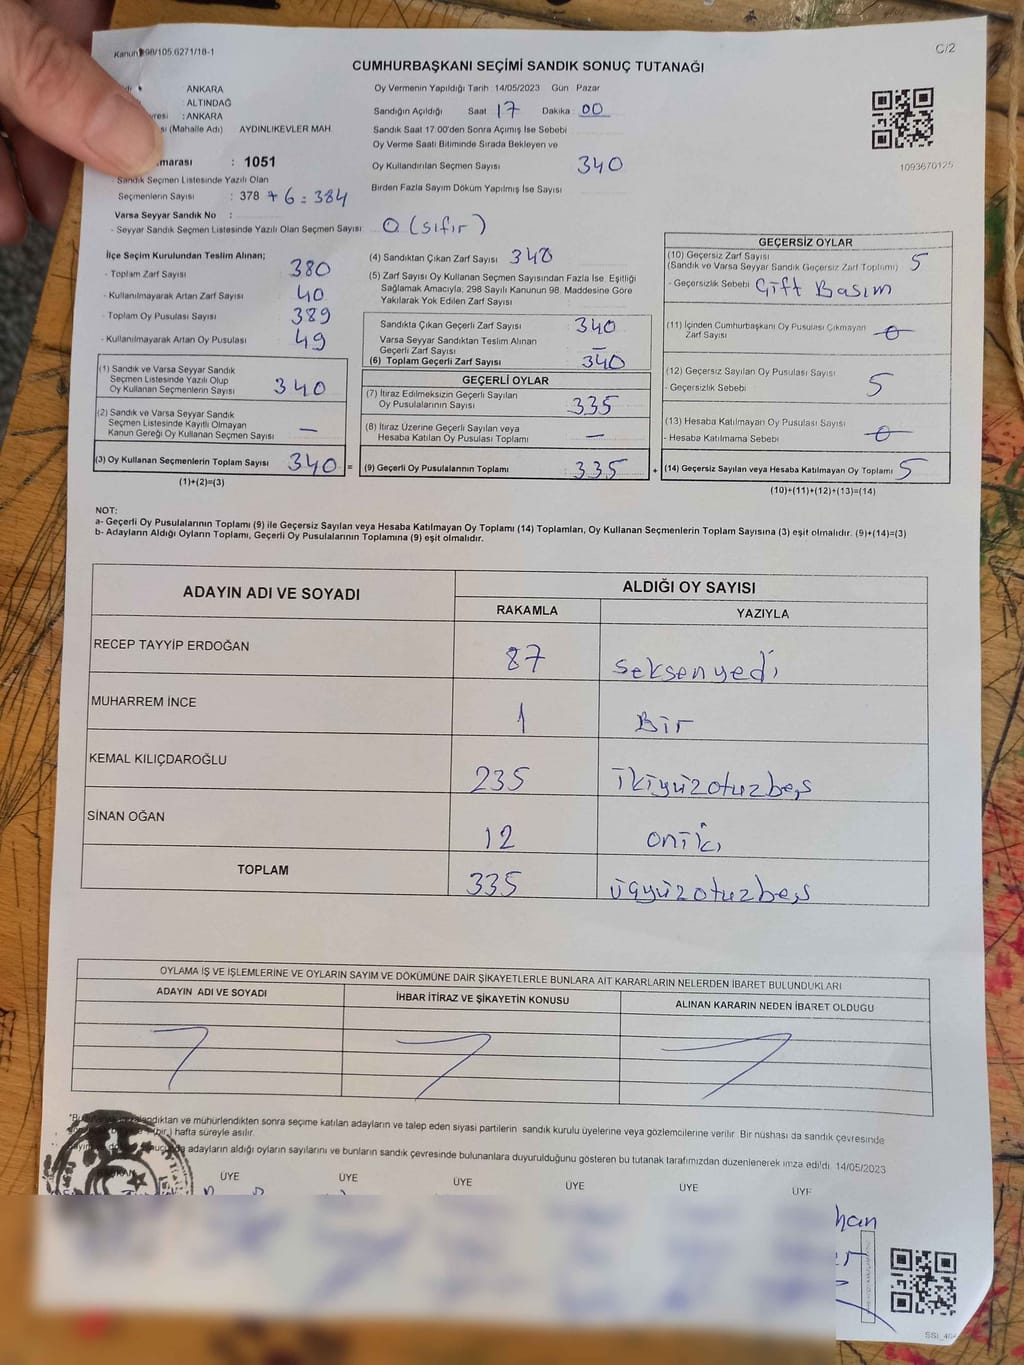 Kanun 298/105.6271/18-1
C/2
CUMHURBAŞKANI SEÇİMİ SANDIK SONUÇ TUTANAĞI
ANKARA
: ALTINDAĞ
: ANKARA
(Mahalle Adı) : AYDINLIKEVLER MAH.
: 1051
- Sandık Seçmen Listesinde Yazılı Olan
Seçmenlerin Sayısı : 378 + 6 = 384
Varsa Seyyar Sandık No :
- Seyyar Sandık Seçmen Listesinde Yazılı Olan Seçmen Sayısı 0 (sıfır)
Oy Vermenin Yapıldığı Tarih : 14/05/2023 Gün : Pazar
Sandığın Açıldığı Saat 17 Dakika 00
Sandık Saat 17.00'den Sonra Açımış İse Sebebi
Oy Verme Saati Bitiminde Sırada Bekleyen ve
Oy Kullandırılan Seçmen Sayısı 340
Birden Fazla Sayım Döküm Yapılmış İse Sayısı
1093670125
İlçe Seçim Kurulundan Teslim Alınan;
- Toplam Zarf Sayısı 380
- Kullanılmayarak Artan Zarf Sayısı 40
- Toplam Oy Pusulası Sayısı 389
- Kullanılmayarak Artan Oy Pusulası 49
(1) Sandık ve Varsa Seyyar Sandık
Seçmen Listesinde Yazılı Olup
Oy Kullanan Seçmenlerin Sayısı 340
(2) Sandık ve Varsa Seyyar Sandık
Seçmen Listesinde Kayıtlı Olmayan
Kanun Gereği Oy Kullanan Seçmen Sayısı —
(3) Oy Kullanan Seçmenlerin Toplam Sayısı 340 =
(1)+(2)=(3)
(4) Sandıktan Çıkan Zarf Sayısı 340
(5) Zarf Sayısı Oy Kullanan Seçmen Sayısından Fazla İse Eşitliği
Sağlamak Amacıyla, 298 Sayılı Kanunun 98. Maddesine Göre
Yakılarak Yok Edilen Zarf Sayısı :
Sandıkta Çıkan Geçerli Zarf Sayısı : 340
Varsa Seyyar Sandıktan Teslim Alınan
Geçerli Zarf Sayısı : —
(6) Toplam Geçerli Zarf Sayısı : 340
GEÇERLİ OYLAR
(7) İtiraz Edilmeksizin Geçerli Sayılan
Oy Pusulalarının Sayısı 335
(8) İtiraz Üzerine Geçerli Sayılan veya
Hesaba Katılan Oy Pusulası Toplamı —
(9) Geçerli Oy Pusulalarının Toplamı 335 +
GEÇERSİZ OYLAR
(10) Geçersiz Zarf Sayısı
(Sandık ve Varsa Seyyar Sandık Geçersiz Zarf Toplamı) 5
- Geçersizlik Sebebi Çift Basım
(11) İçinden Cumhurbaşkanı Oy Pusulası Çıkmayan
Zarf Sayısı 0
(12) Geçersiz Sayılan Oy Pusulası Sayısı
- Geçersizlik Sebebi 5
(13) Hesaba Katılmayan Oy Pusulası Sayısı
- Hesaba Katılmama Sebebi 0
(14) Geçersiz Sayılan veya Hesaba Katılmayan Oy Toplamı 5
(10)+(11)+(12)+(13)=(14)
NOT:
a- Geçerli Oy Pusulalarının Toplamı (9) ile Geçersiz Sayılan veya Hesaba Katılmayan Oy Toplamı (14) Toplamları, Oy Kullanan Seçmenlerin Toplam Sayısına (3) eşit olmalıdır. (9)+(14)=(3)
b- Adayların Aldığı Oyların Toplamı, Geçerli Oy Pusulalarının Toplamına (9) eşit olmalıdır.
ADAYIN ADI VE SOYADI ALDIĞI OY SAYISI
RAKAMLA YAZIYLA
RECEP TAYYİP ERDOĞAN 87 seksenyedi
MUHARREM İNCE 1 Bir
KEMAL KILIÇDAROĞLU 235 ikiyüzotuzbeş
SİNAN OĞAN 12 oniki
TOPLAM 335 üçyüzotuzbeş
OYLAMA İŞ VE İŞLEMLERİNE VE OYLARIN SAYIM VE DÖKÜMÜNE DAİR ŞİKAYETLERLE BUNLARA AİT KARARLARIN NELERDEN İBARET BULUNDUKLARI
ADAYIN ADI VE SOYADI İHBAR İTİRAZ VE ŞİKAYETİN KONUSU ALINAN KARARIN NEDEN İBARET OLDUĞU
ve mühürlendikten sonra seçime katılan adayların ve talep eden siyasi partilerin sandık kurulu üyelerine veya gözlemcilerine verilir. Bir nüshası da sandık çevresinde
(bir) hafta süreyle asılır.
adayların aldığı oyların sayılarını ve bunların sandık çevresinde bulunanlara duyurulduğunu gösteren bu tutanak tarafımızdan düzenlenerek imza edildi. 14/05/2023
BAŞKAN ÜYE ÜYE ÜYE ÜYE ÜYE ÜYE